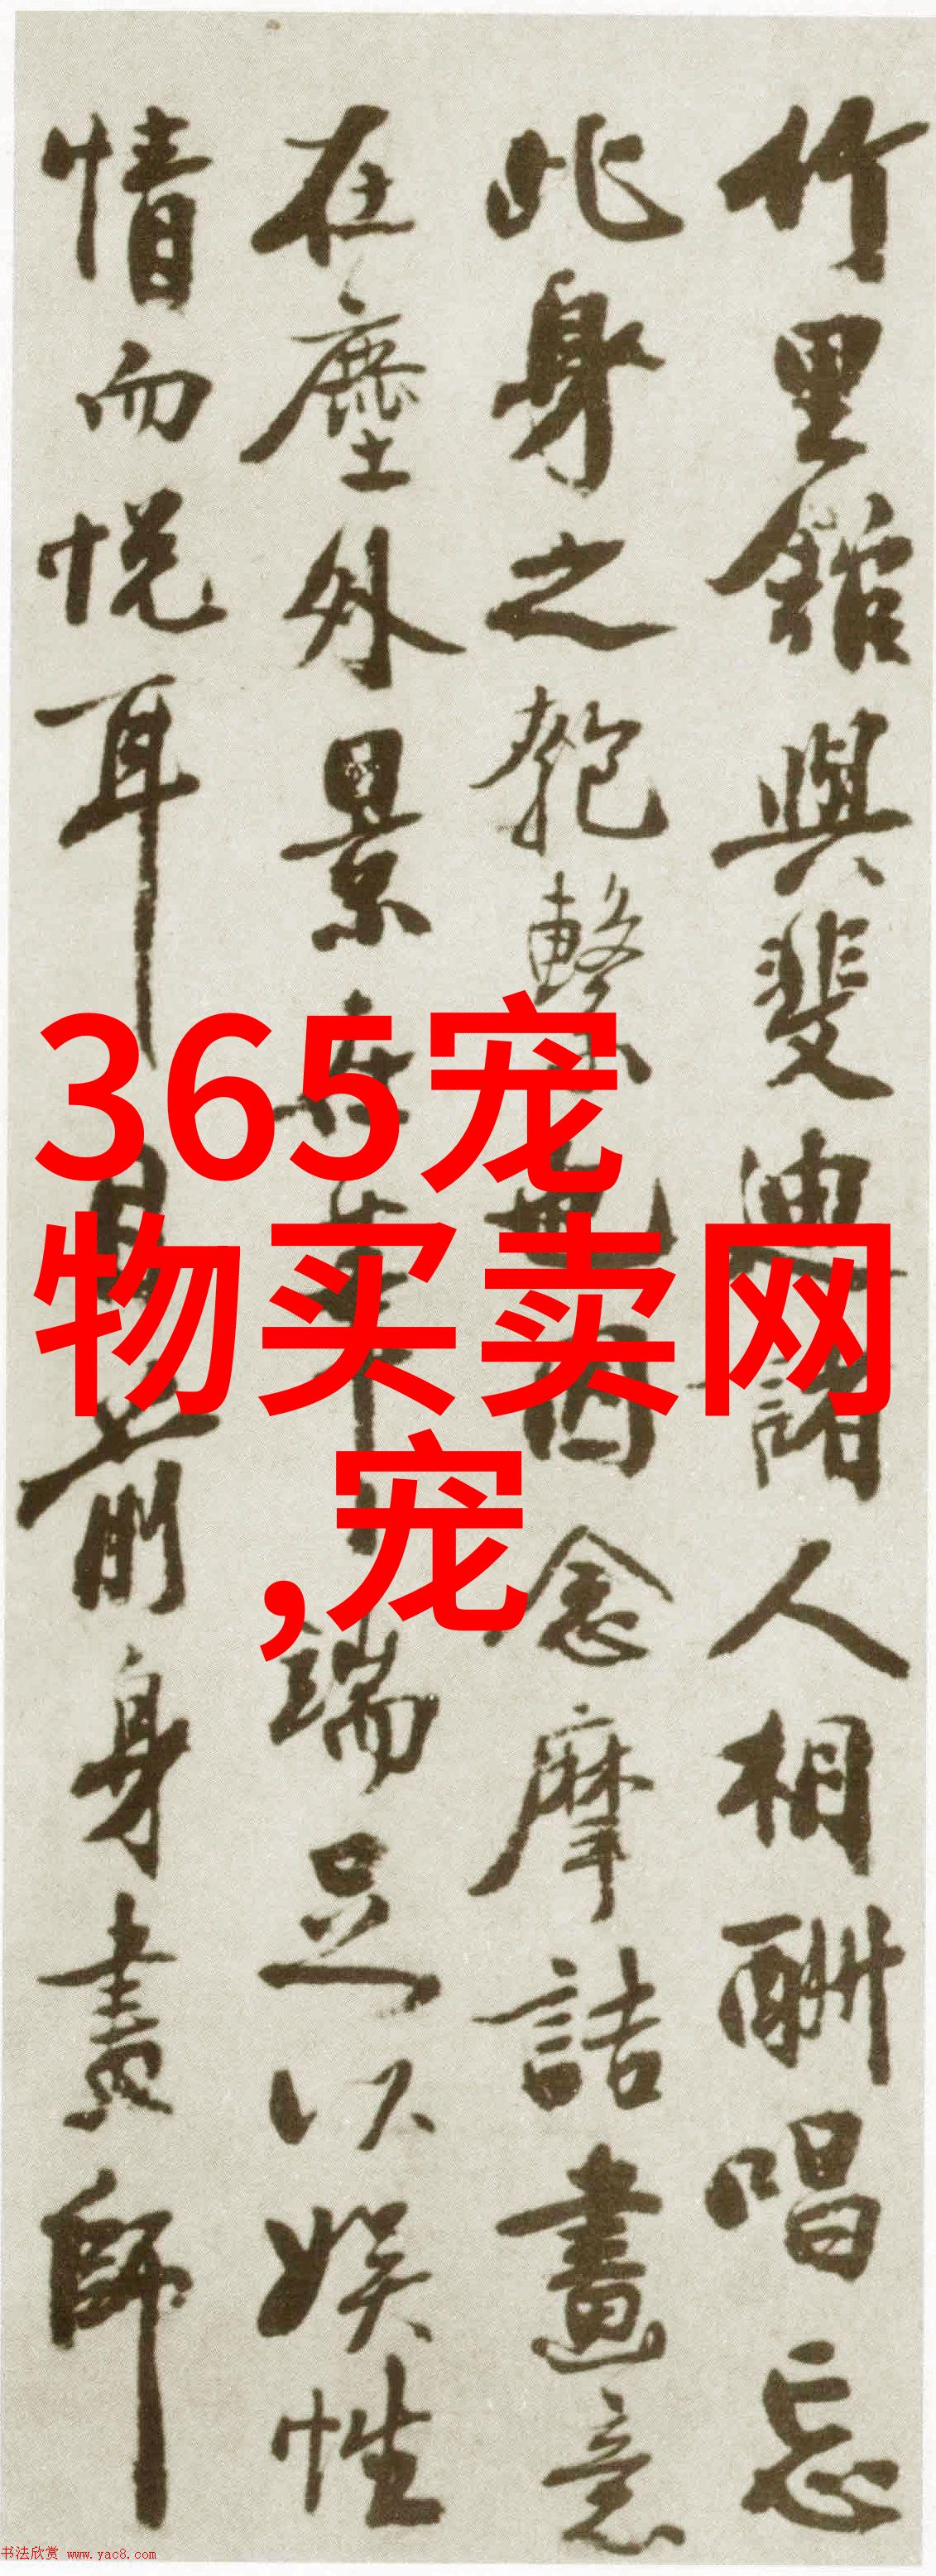 竹里館與斐迪諸人相酬唱忘
此身之匏繫也因念摩詰畫意
在塵外景在筆端足以娛性
情而悅耳目前身畫師
365宠
物买卖网
,宠
书法欣赏 www.yac8.com